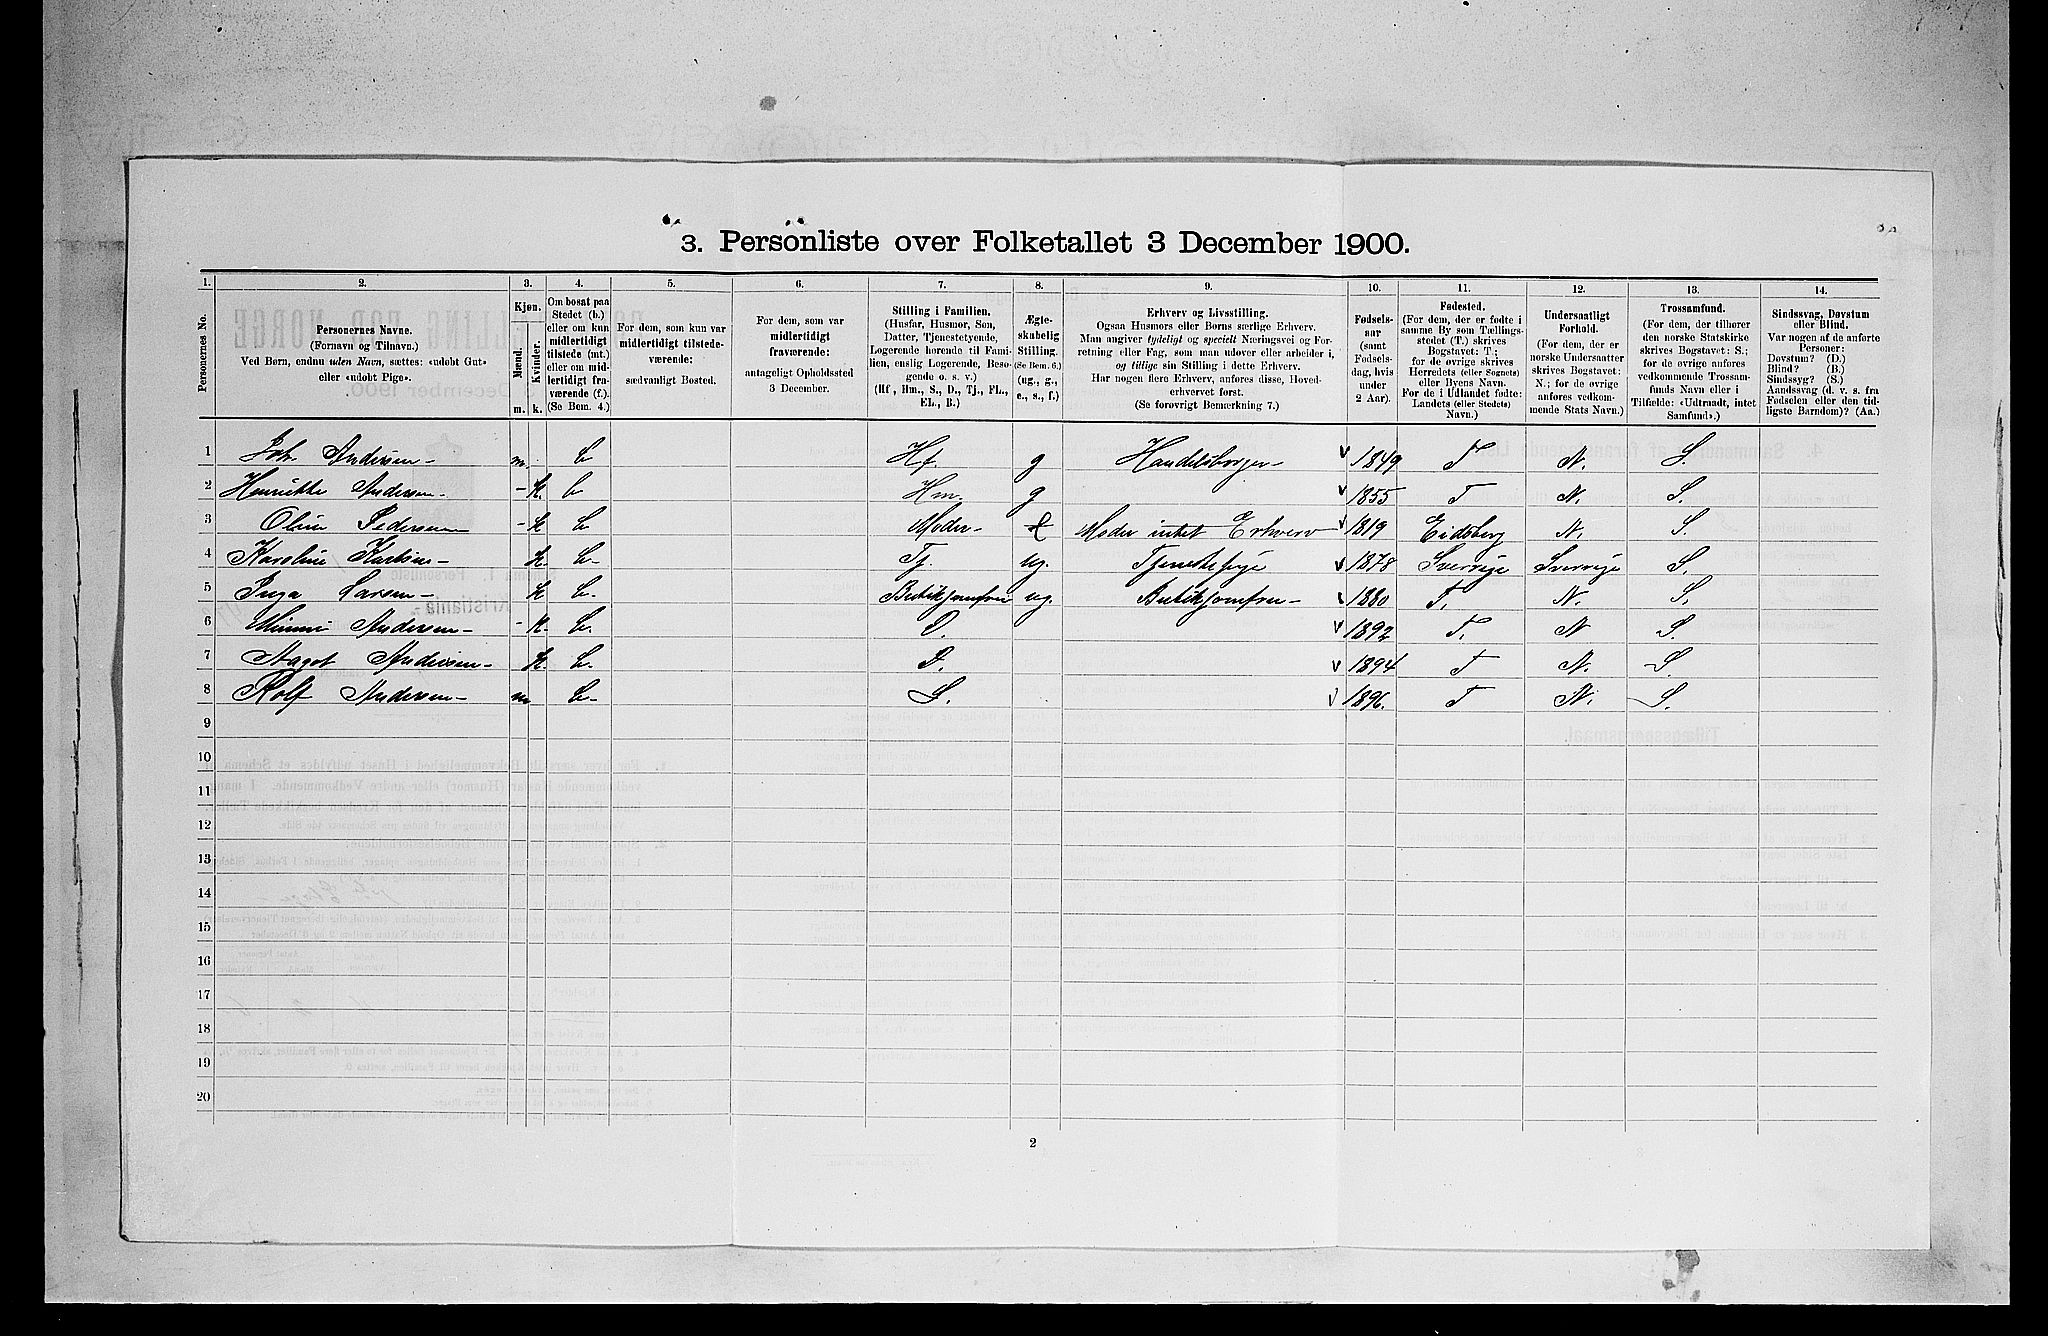 3. Personliste over Folketallet 3 December 1900.
1. 2. 3. 4. 5. 6. 7. 8. 9. 10. 11. 12. 13. 14.
Personernes No.
Personernes Navne.
(Fornavn og Tilnavn.)
Ved Børn, endnu uden Navn, sættes: «udøbt Gut»
eller «udøbt Pige».
Kjøn.
Mænd.
Kvinder.
m. k.
Om bosat paa
Stedet (b.)
eller om kun
midlertidigt
tilstede (mt.)
eller om mid-
lertidigt fra-
værende (f.).
(Se Bem. 4.)
For dem, som kun var
midlertidigt tilstede-
værende:
sædvanligt Bosted.
For dem, som var
midlertidigt
fraværende:
antageligt Opholdssted
3 December.
Stilling i Familien.
(Husfar, Husmor, Søn,
Datter, Tjenestetyende,
Logerende hørende til Fami-
lien, enslig Logerende, Besø-
gende o. s. v.)
(Hf., Hm., S., D., Tj., FL.,
EL., B.)
Ægte-
skabelig
Stilling.
(Se Bem. 6.)
(ug., g.,
e., s., f.)
Erhverv og Livsstilling.
Ogsaa Husmors eller Børns særlige Erhverv.
Man angiver tydeligt og specielt Næringsvei og For-
retning eller Fag, som man udøver eller arbeider i,
og tillige sin Stilling i dette Erhverv.
Har nogen flere Erhverv, anføres disse, Hoved-
erhvervet først.
(Se forøvrigt Bemærkning 7.)
Fødsels-
aar
(samt
Fødsels-
dag, hvis
under
2 Aar).
Fødested.
(For dem, der er fødte i
samme By som Tællings-
stedet (T.) skrives
Bogstavet: T.;
for de øvrige skrives
Herredets (eller Sognets)
eller Byens Navn.
For de i Udlandet fødte:
Landets (eller Stedets)
Navn.)
Undersaatligt
Forhold.
(For dem, der er
norske Undersaatter
skrives Bogstavet:
N.; for de øvrige
anføres vedkom-
mende Stats Navn.)
Trossamfund.
(For dem, der tilhører
den norske Statskirke
skrives Bogstavet: S.;
for de øvrige anføres
vedkommende Trossam-
funds Navn eller i
Tilfælde: «Udtraadt, intet
Samfund».)
Sindssvag, Døvstum
eller Blind.
Var nogen af de anførte
Personer:
Døvstum? (D.)
Blind? (B.)
Sindssyg? (S.)
Aandssvag (d. v. s. fra
Fødselen eller den tid-
ligste Barndom)? (Aa.)
1 Joh. Andersen m. b Hf. g Handelsborger 1849 T N. S.
2 Henrikke Andersen - k. b Hm. g 1855 T N. S.
3 Oline Pedersen - k b Moder e Moder intet Erhverv 1819 Eidsberg N. S.
4 Karoline k. b Tj. ug. Tjenestepige 1878 Sverrige Sverrige S
5 Inga Larsen k b. Butikjomfru ug. Butikjomfru 1880 T. N. S.
6 Minni Andersen - k. b. D. 1892 T. N S.
7 Aagot Andersen k. b. D. 1894 T N. S.
8 Rolf Andersen m b S. 1896. T N. S.
9
10
11
12
13
14
15
16
17
18
19
20
2